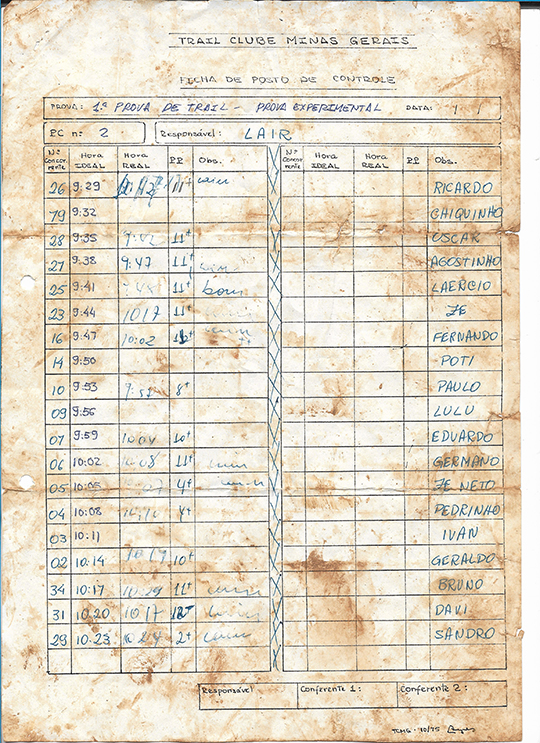 TRAIL CLUBE MINAS GERAIS
FICHA DE POSTO DE CONTROLE
PROVA: 1.ª PROVA DE TRAIL - PROVA EXPERIMENTAL DATA: / /
PC nº 2 Responsável: LAIR
Nº Concorrente Hora IDEAL Hora REAL PP Obs. Nº Concorrente Hora IDEAL Hora REAL PP Obs.
26 9:29 RICARDO
79 9:32 CHIQUINHO
28 9:35 11+ OSCAR
27 9:38 9:47 11+ AGOSTINHO
25 9:41 11+ LAERCIO
23 9:44 1017 11 ZE
16 9:47 10:02 FERNANDO
14 9:50 POTI
10 9:53 8+ PAULO
09 9:56 LULU
07 9:59 10+ EDUARDO
06 10:02 11+ GERMANO
05 10:05 4+ ZE NETO
04 10:08 4+ PEDRINHO
03 10:11 IVAN
02 10:14 10+ GERALDO
34 10:17 10:29 11+ BRUNO
31 10.20 1017 DAVI
29 10:23 2+ SANDRO
Responsável Conferente 1: Conferente 2:
TCMG-10/75